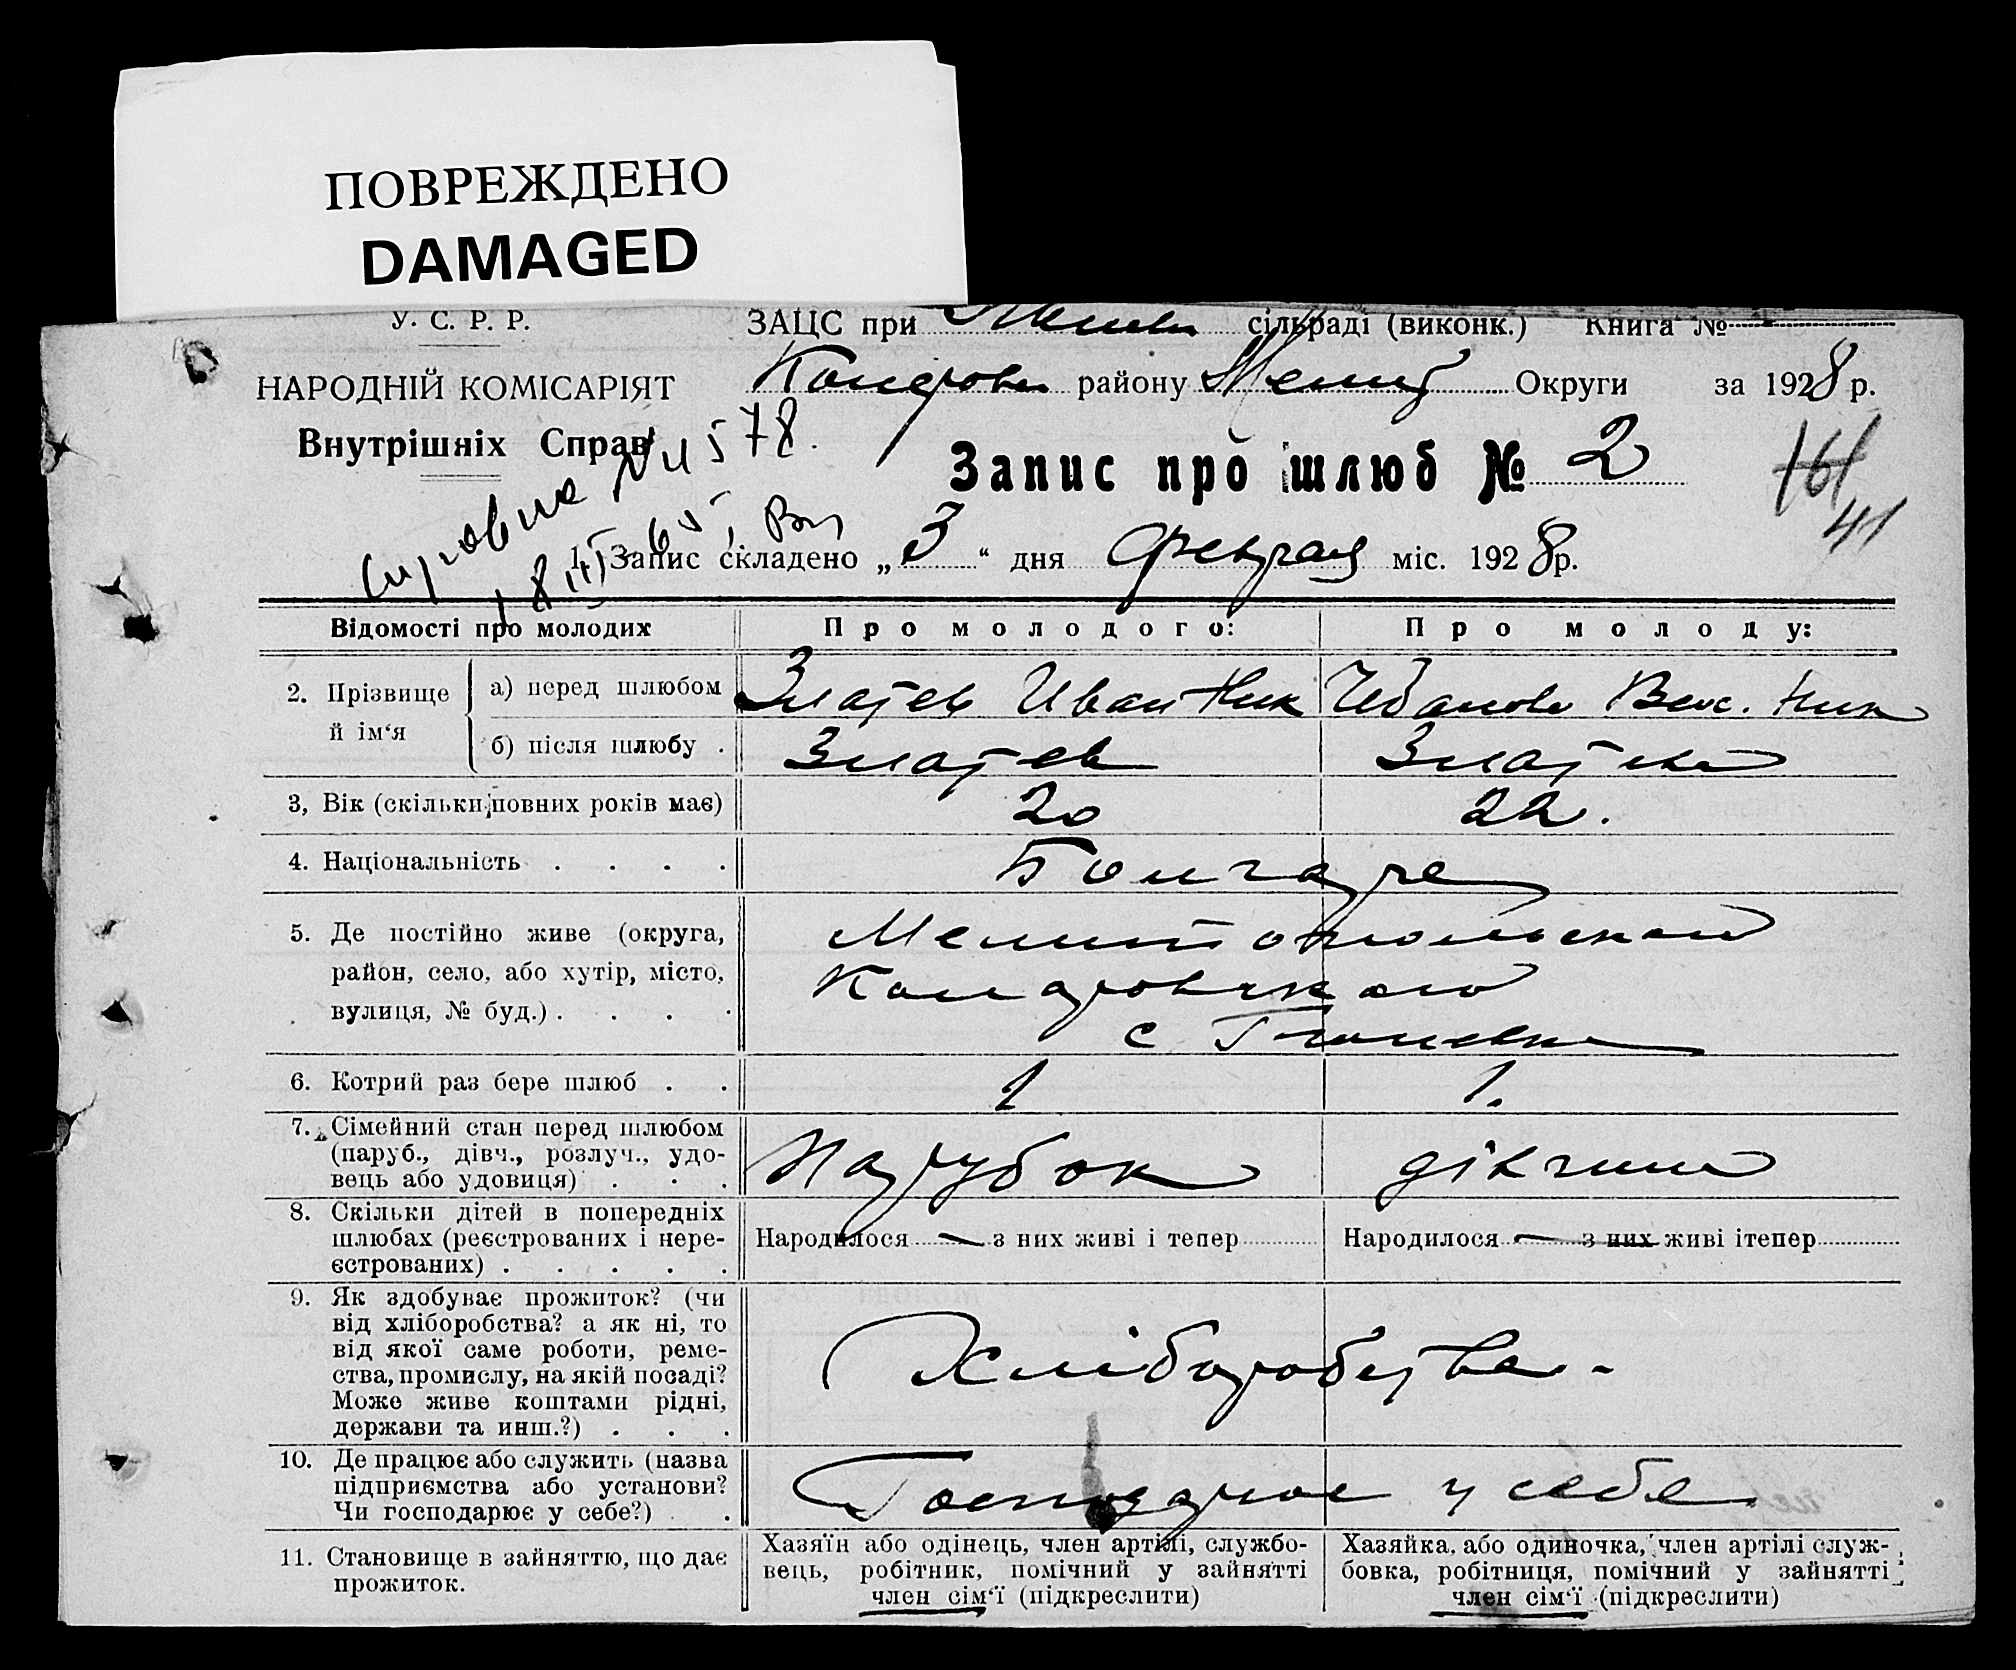 ПОВРЕЖДЕНО
DAMAGED
У. С. Р. Р.
ЗАЦС при сільраді (виконк.) Книга №
НАРОДНІЙ КОМІСАРІЯТ
району Мелит Округи за 1928 р.
Внутрішніх Справ
578.
Запис про шлюб № 2
161
41
1. Запис складено „3“ дня февраля міс. 1928 р.
Відомості про молодих
Про молодого:
Про молоду:
2. Прізвище й ім‘я
а) перед шлюбом
Златев Иван Ник
Чебанова Вас. Ник
б) після шлюбу .
Златев
Златева
3, Вік (скільки повних років має)
20
22.
4. Національність . . . .
Болгаре
5. Де постійно живе (округа,
район, село, або хутір, місто,
вулиця, № буд.) . . . .
Мелитопольской
с
6. Котрий раз бере шлюб . .
1
1.
7. Сімейний стан перед шлюбом
(паруб., дівч., розлуч., удо-
вець або удовиця) . . .
Парубок
дівчина
8. Скільки дітей в попередніх
шлюбах (реєстрованих і нере-
єстрованих) . . . . .
Народилося — з них живі і тепер
Народилося — з них живі ітепер
9. Як здобуває прожиток? (чи
від хліборобства? а як ні, то
від якої саме роботи, реме-
ства, промислу, на якій посаді?
Може живе коштами рідні,
держави та инш.?) . . .
Хліборобства
10. Де працює або служить (назва
підприємства або установи?
Чи господарює у себе?) . .
Господарює у себе
11. Становище в зайняттю, що дає
прожиток.
Хазяїн або одінець, член артілі, службо-
вець, робітник, помічний у зайнятті
член сім‘ї (підкреслити)
Хазяйка, або одиночка, член артілі служ-
бовка, робітниця, помічний у зайнятті
член сім‘ї (підкреслити)